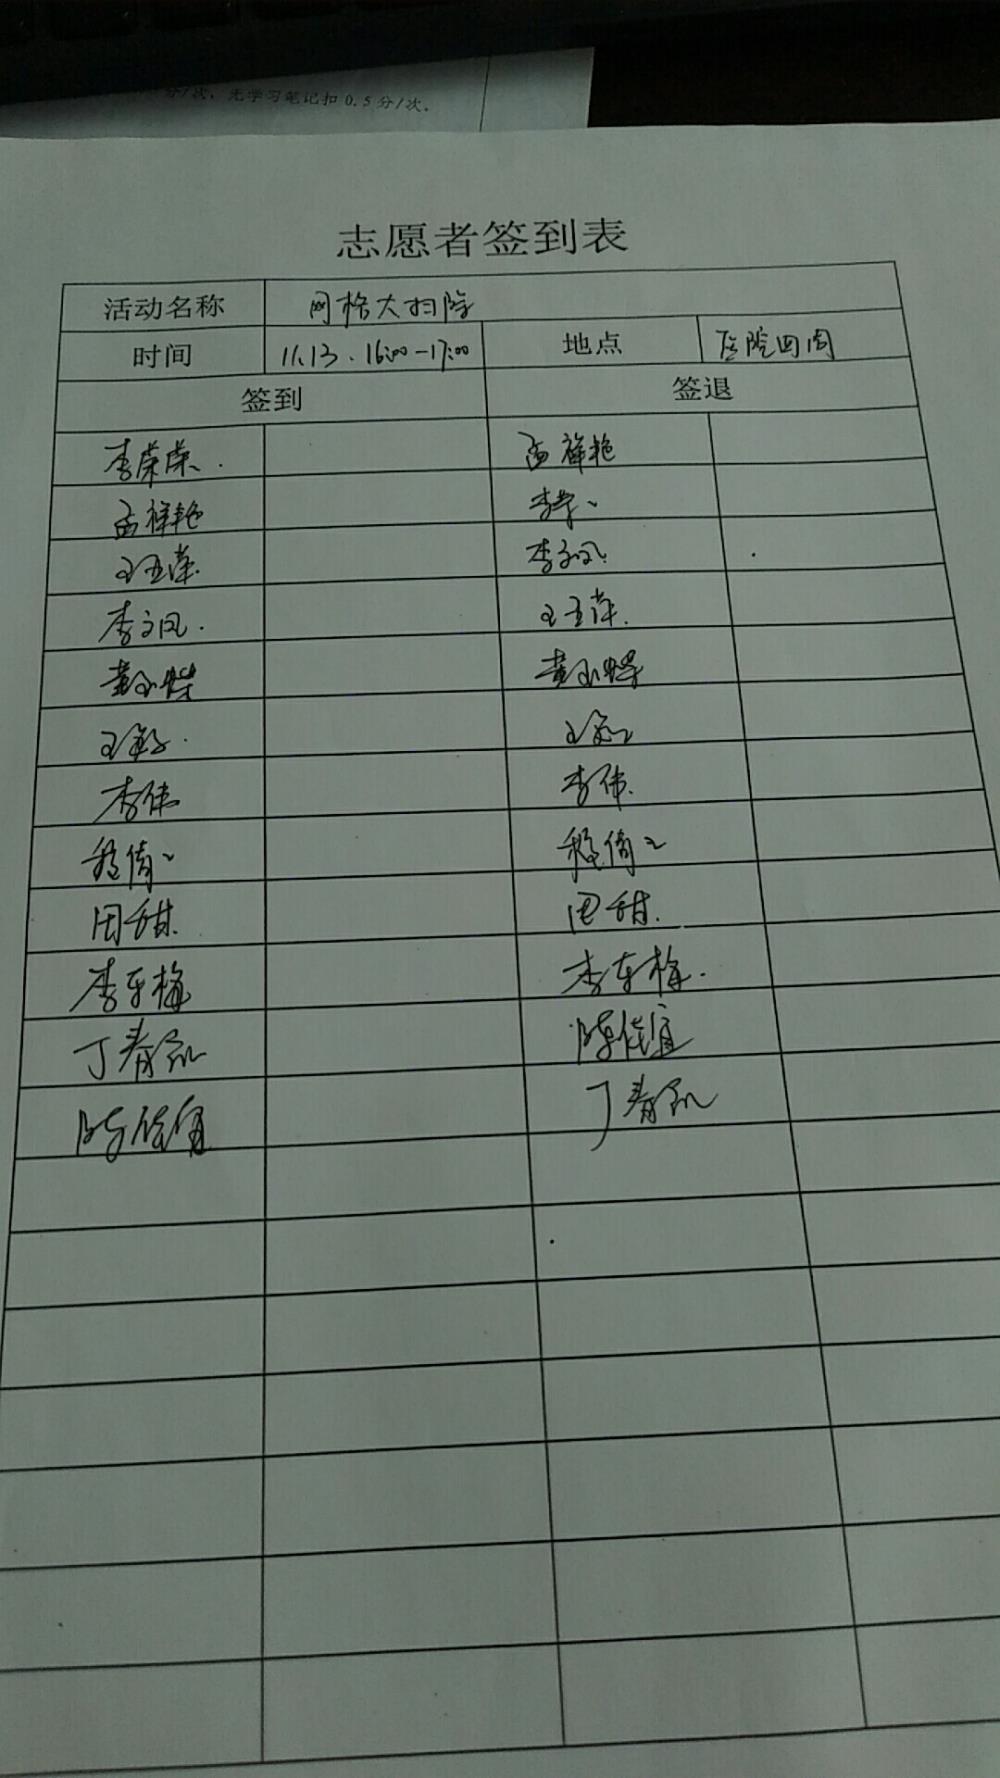 分/次，无学习笔记扣0.5分/次。
志愿者签到表
活动名称 网格大扫除
时间 11.13.16:00-17:00 地点 医院四周
签到 签退
李荣荣. 孟祥艳
孟祥艳 李荣
王亚萍. 李文凤
李文凤. 王亚萍.
黄玉蝶 黄玉蝶
王敏. 王敏
李伟 李伟.
程倩 程倩
田甜. 田甜.
李冬梅 李冬梅.
丁春凤 陈佳宜
陈佳宜 丁春凤